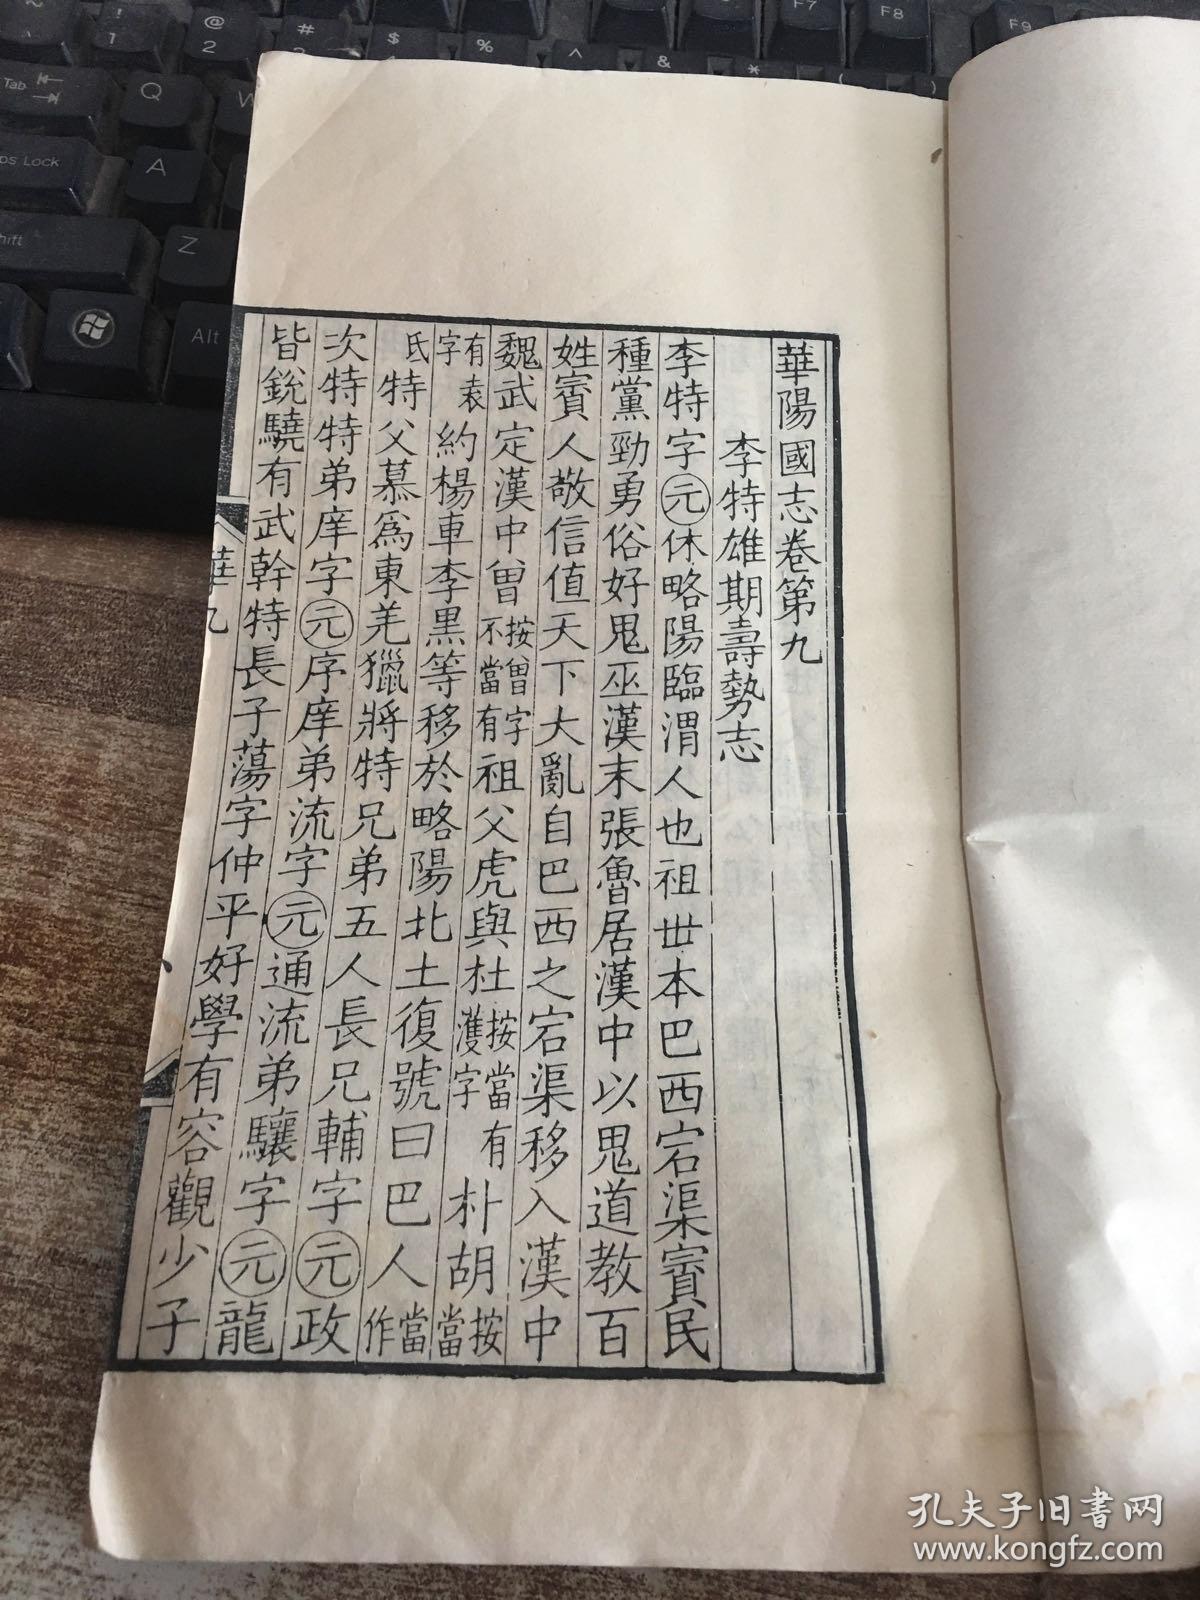 華陽國志卷第九
李特雄期壽勢志
李特字元休略陽臨渭人也祖丗本巴西宕渠賨民
種黨勁勇俗好鬼巫漢末張魯居漢中以鬼道教百
姓賨人敬信值天下大亂自巴西之宕渠移入漢中
魏武定漢中曾按曾字不當有祖父虎與杜按當有濩字朴胡按當
有袁字約楊車李黑等移於略陽北土復號曰巴人當作
氏特父慕爲東羌獵將特兄弟五人長兄輔字元政
次特特弟庠字元序庠弟流字元通流弟驤字元龍
皆銳驍有武幹特長子蕩字仲平好學有容觀少子
華九
Tab
Q
W
A
Caps Lock
Shift
Z
Alt
!
1
@
2
#
$
%
^
&
*
(
)
F7
F8
F9
孔夫子旧书网
www.kongfz.com